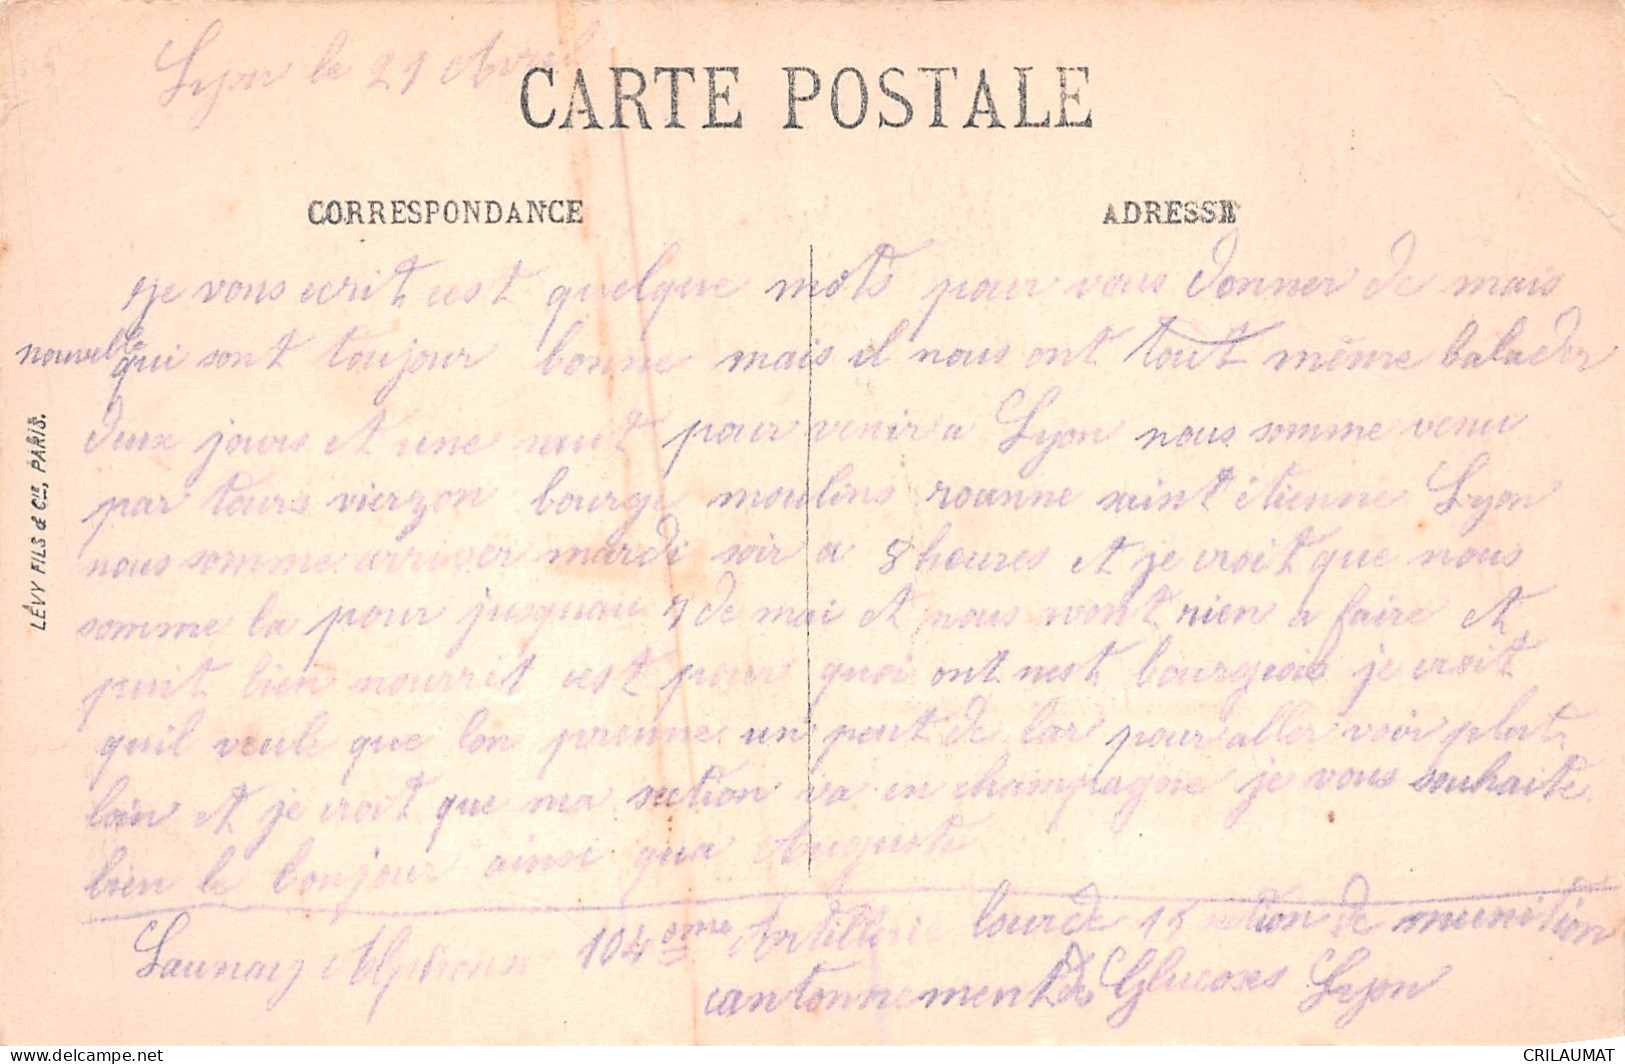 Lyon le 21 Avril
CARTE POSTALE
CORRESPONDANCE
ADRESSE
je vous ecrit cest quelque mots pour vous donner de mais
nouvelle qui sont toujour bonne mais il nous ont tout même balader
deux jours et une nuit pour venir a Lyon nous somme venu
par tours vierzon bourge moulins roanne saint étienne Lyon
nous somme arriver mardi soir a 8 heures et je croit que nous
somme la pour jusquau 7 de mai et nous avont rien a faire et
puit bien nourrit cest pour quoi ont nest bourgeois je croit
quil veule que lon prenne un peut de lar pour aller voir plut
loin et je croit que ma section va en champagne je vous souhaite
bien le bonjour ainsi qua Auguste
Launay Alphonse 104eme Artillerie lourde 15 section de munition
cantonnement de Glucoses Lyon
LÉVY FILS & CIE, PARIS.
delcampe.net
CRILAUMAT